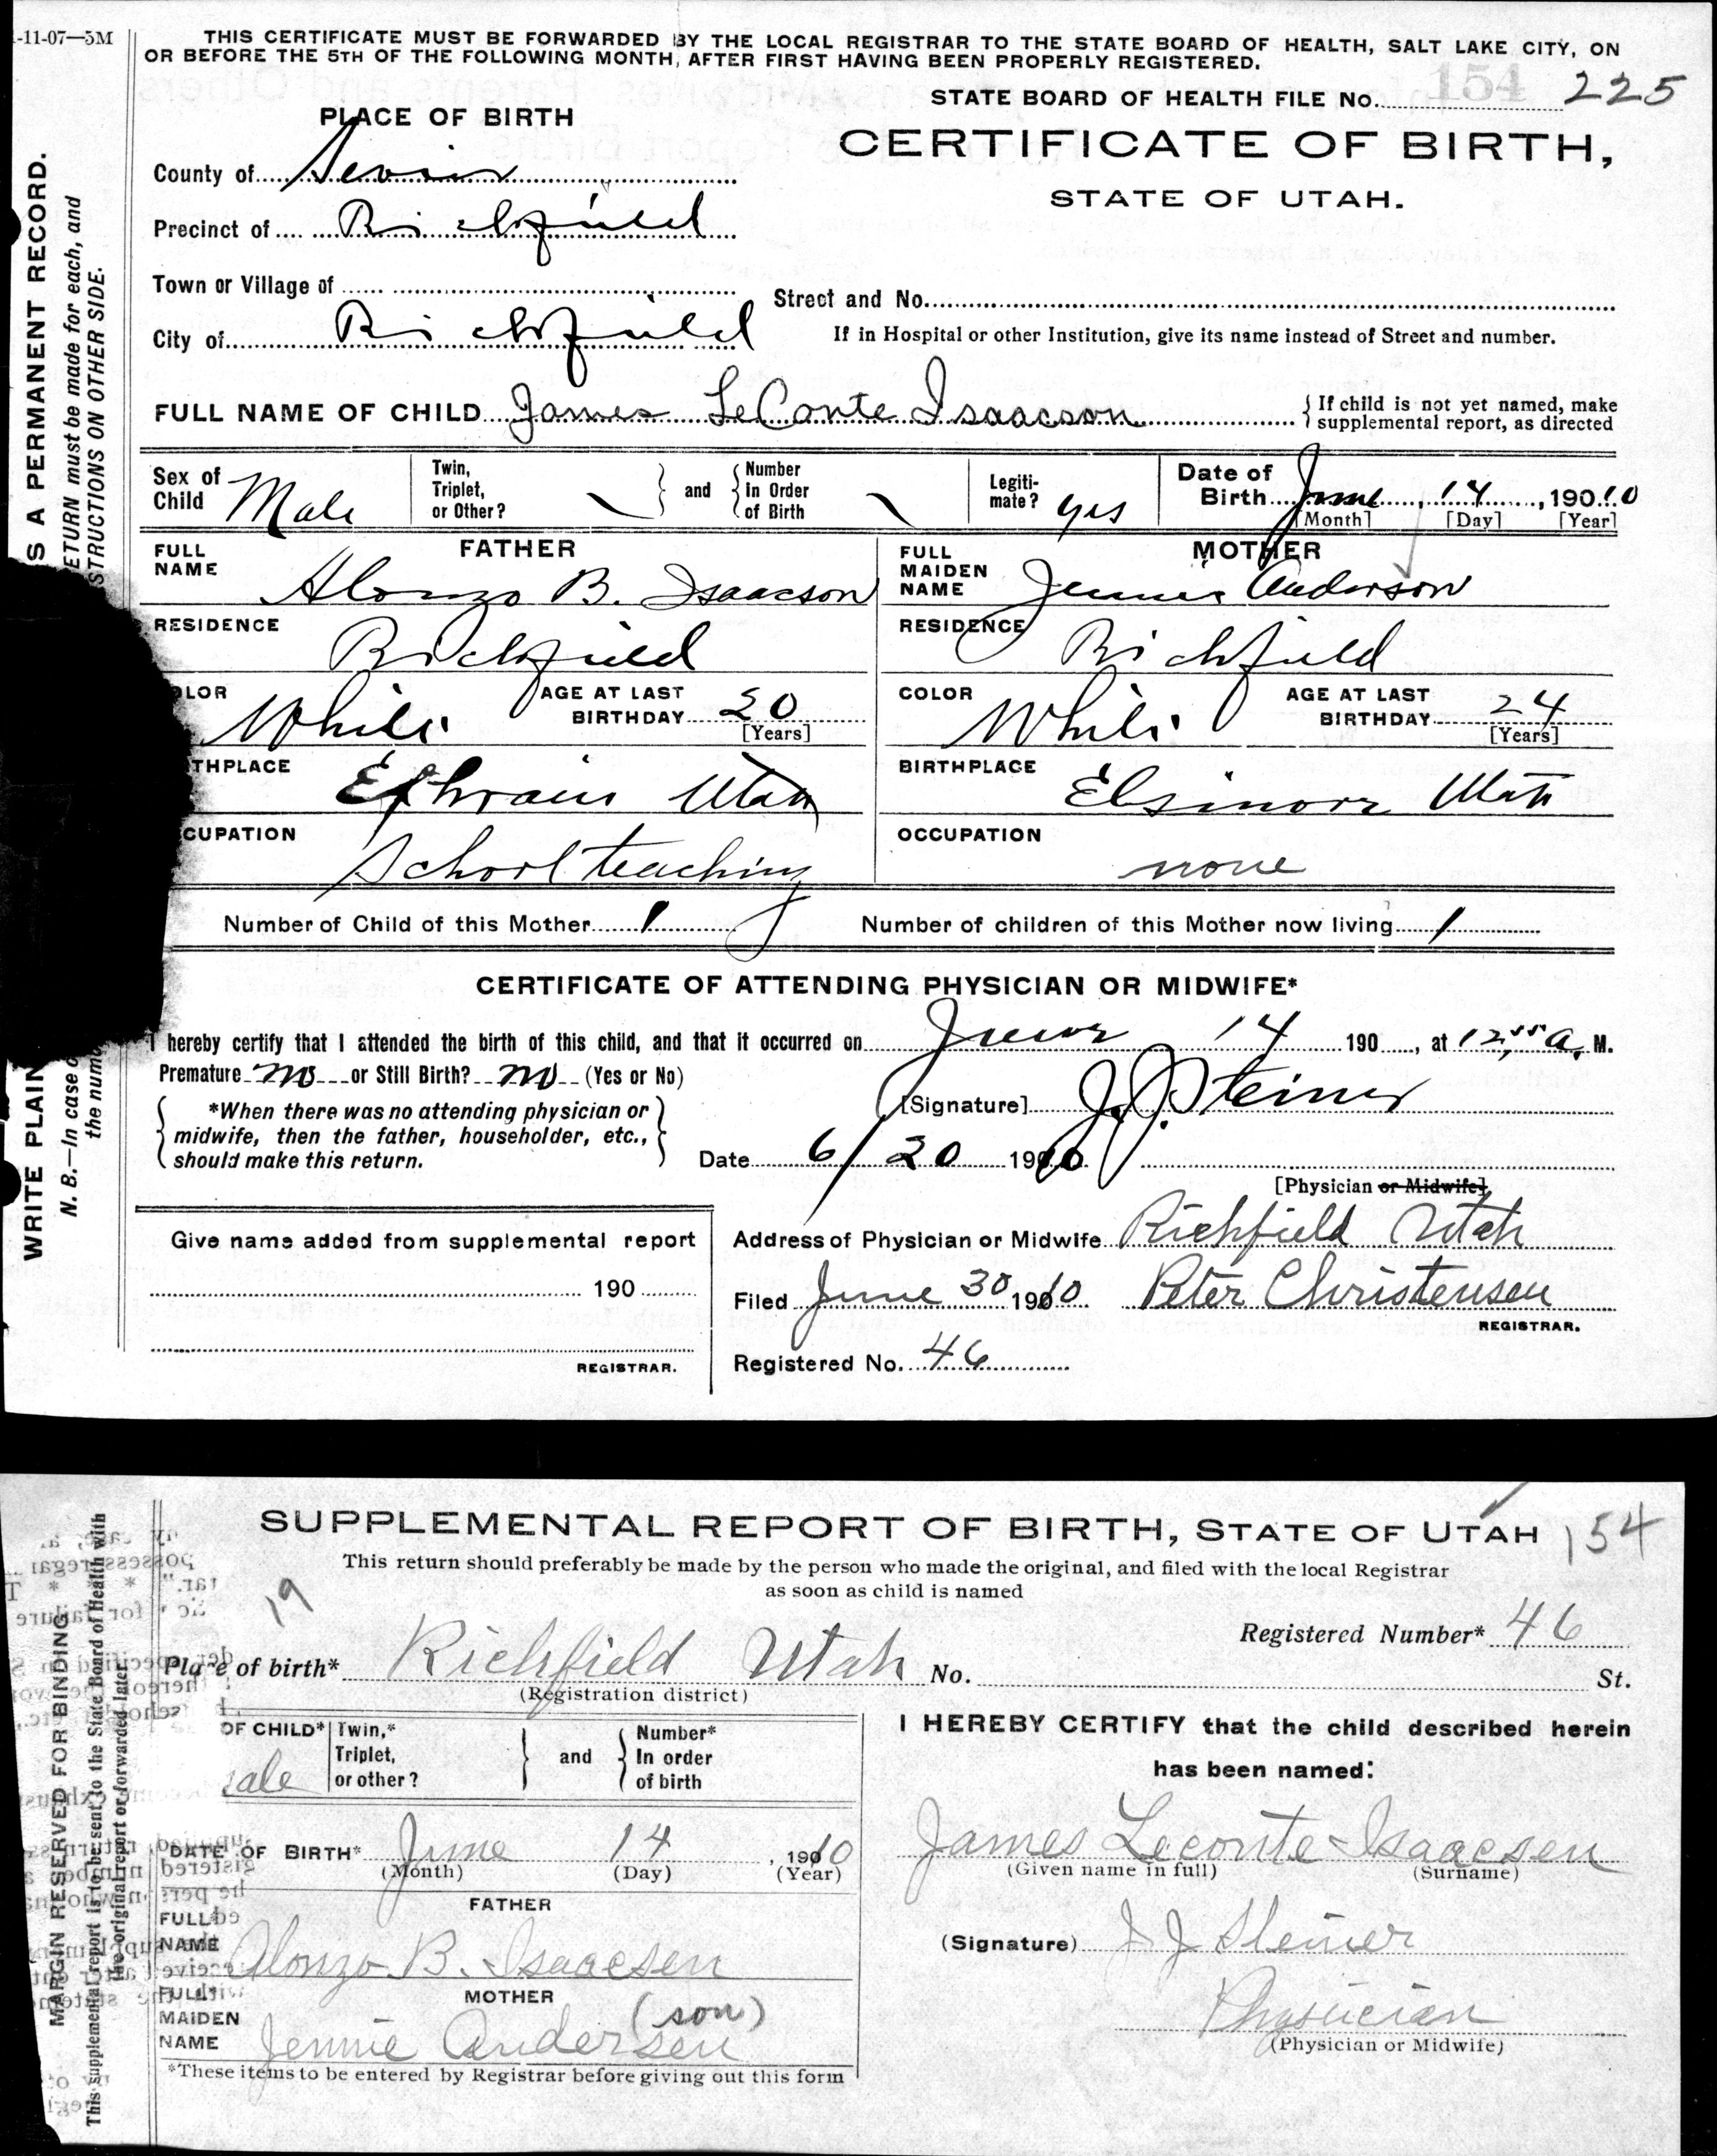 -11-07—5M
THIS CERTIFICATE MUST BE FORWARDED BY THE LOCAL REGISTRAR TO THE STATE BOARD OF HEALTH, SALT LAKE CITY, ON
OR BEFORE THE 5TH OF THE FOLLOWING MONTH, AFTER FIRST HAVING BEEN PROPERLY REGISTERED.
STATE BOARD OF HEALTH FILE No. 154 225
PLACE OF BIRTH
CERTIFICATE OF BIRTH,
STATE OF UTAH.
County of Sevier
Precinct of Richfield
Town or Village of
Street and No.
City of Richfield
If in Hospital or other Institution, give its name instead of Street and number.
FULL NAME OF CHILD James LeConte Isaacson
{ If child is not yet named, make
supplemental report, as directed
Sex of Child Male
Twin, Triplet, or Other? \ } and { Number In Order of Birth \
Legiti-mate? yes
Date of Birth June, 14, 19010
[Month] [Day] [Year]
FATHER
FULL NAME Alonzo B. Isaacson
MOTHER
FULL MAIDEN NAME Jennie Anderson
RESIDENCE Richfield
RESIDENCE Richfield
OLOR White AGE AT LAST BIRTHDAY 20 [Years]
COLOR White AGE AT LAST BIRTHDAY 24 [Years]
THPLACE Ephraim Utah
BIRTHPLACE Elsinore Utah
CUPATION School teaching
OCCUPATION none
Number of Child of this Mother 1
Number of children of this Mother now living 1
CERTIFICATE OF ATTENDING PHYSICIAN OR MIDWIFE*
I hereby certify that I attended the birth of this child, and that it occurred on June 14 190, at 12,55 a. M.
Premature no or Still Birth? no (Yes or No)
{ *When there was no attending physician or }
midwife, then the father, householder, etc.,
should make this return.
[Signature] J. J. Steiner
Date 6/20 1910
[Physician or Midwife]
Give name added from supplemental report
190
REGISTRAR.
Address of Physician or Midwife Richfield Utah
Filed June 30 1910 Peter Christensen
REGISTRAR.
Registered No. 46
WRITE PLAIN
S A PERMANENT RECORD.
N. B.—In case o
ETURN must be made for each, and
the numb
STRUCTIONS ON OTHER SIDE.
SUPPLEMENTAL REPORT OF BIRTH, STATE OF UTAH 154
This return should preferably be made by the person who made the original, and filed with the local Registrar
as soon as child is named
19
Registered Number* 46
Place of birth* Richfield Utah No. St.
(Registration district)
OF CHILD* ale
Twin,* Triplet, or other? } and { Number* In order of birth
I HEREBY CERTIFY that the child described herein
has been named:
DATE OF BIRTH* June 14, 1910
(Month) (Day) (Year)
James Leconte Isaacsen
(Given name in full) (Surname)
FATHER
FULL NAME Alonzo B. Isaacsen
(Signature) J J Steiner
MOTHER
FULL MAIDEN NAME Jennie Andersen (son)
Physician
(Physician or Midwife)
*These items to be entered by Registrar before giving out this form
MARGIN RESERVED FOR BINDING
This supplemental report is to be sent to the State Board of Health with
the original report or forwarded later.